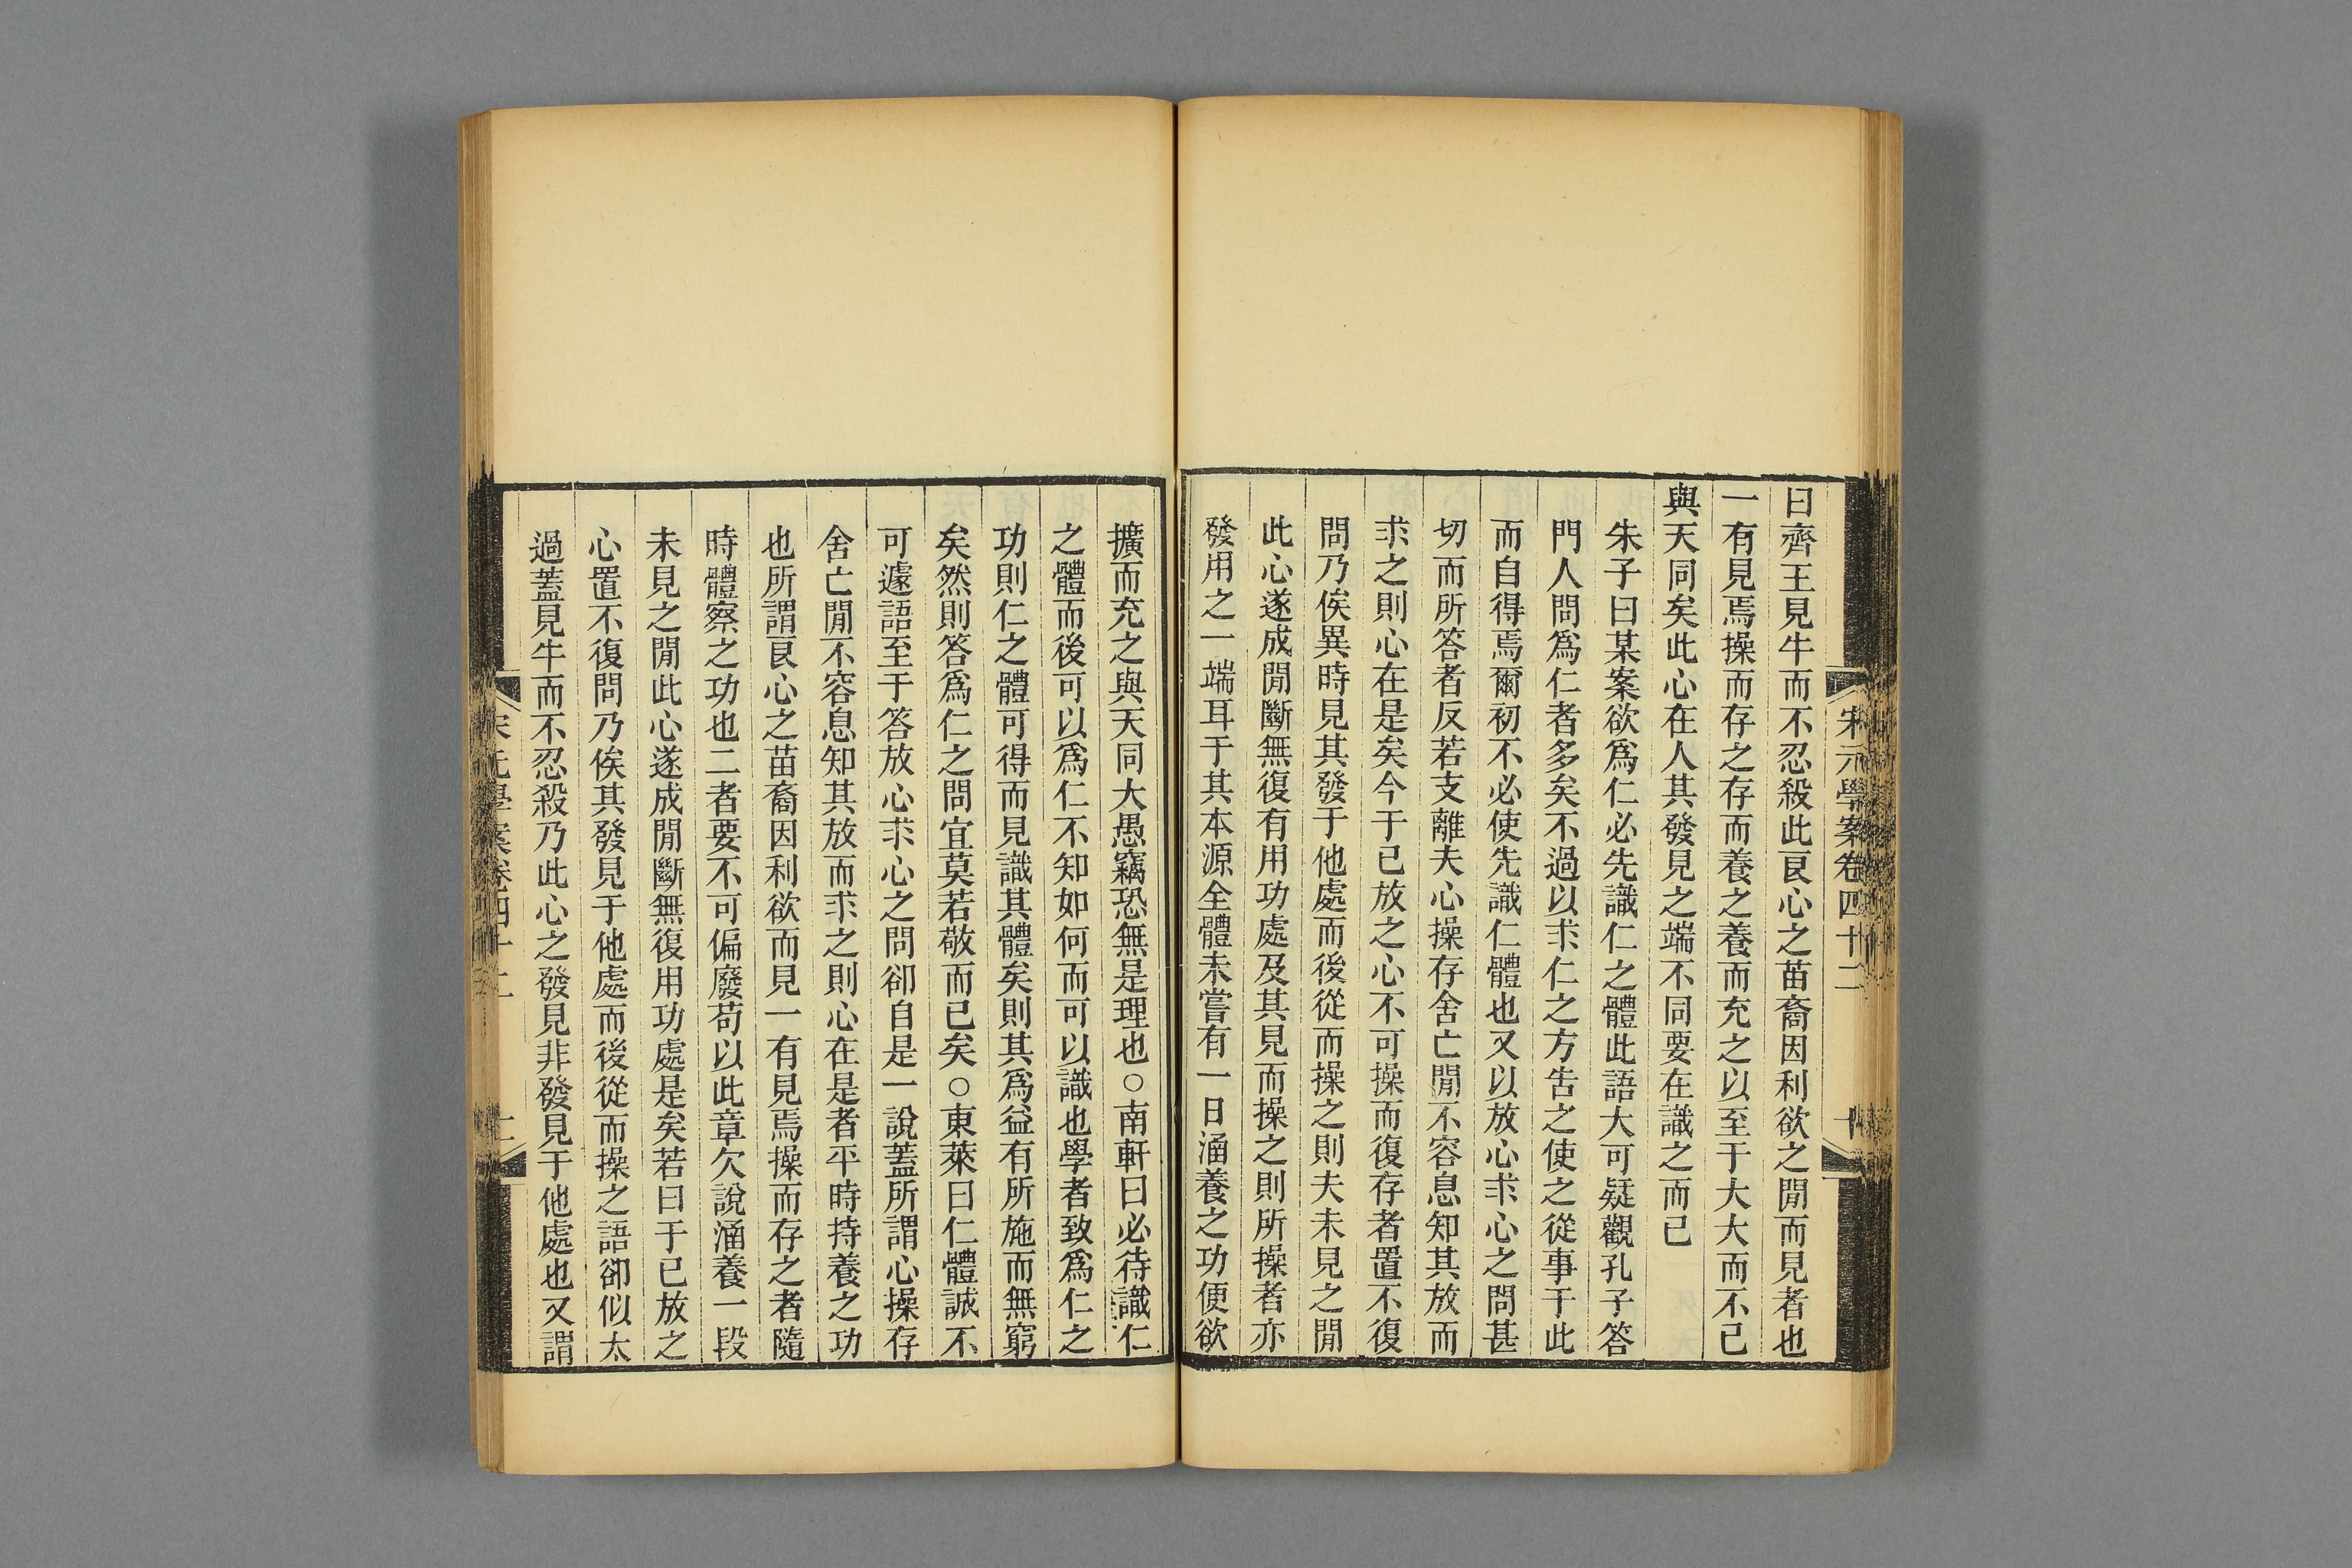 宋元學案卷四十二
十
曰齊王見牛而不忍殺此良心之苗裔因利欲之閒而見者也
一有見焉操而存之存而養之養而充之以至于大大而不已
與天同矣此心在人其發見之端不同要在識之而已
朱子曰某案欲爲仁必先識仁之體此語大可疑觀孔子答
門人問爲仁者多矣不過以求仁之方告之使之從事于此
而自得焉爾初不必使先識仁體也又以放心求心之問甚
切而所答者反若支離夫心操存舍亡閒不容息知其放而
求之則心在是矣今于已放之心不可操而復存者置不復
問乃俟異時見其發于他處而後從而操之則夫未見之閒
此心遂成閒斷無復有用功處及其見而操之則所操者亦
發用之一端耳于其本源全體未嘗有一日涵養之功便欲
擴而充之與天同大愚竊恐無是理也○南軒曰必待識仁
之體而後可以爲仁不知如何而可以識也學者致爲仁之
功則仁之體可得而見識其體矣則其爲益有所施而無窮
矣然則答爲仁之問宜莫若敬而已矣○東萊曰仁體誠不
可遽語至于答放心求心之問卻自是一說蓋所謂心操存
舍亡閒不容息知其放而求之則心在是者平時持養之功
也所謂良心之苗裔因利欲而見一有見焉操而存之者隨
時體察之功也二者要不可偏廢苟以此章欠說涵養一段
未見之閒此心遂成閒斷無復用功處是矣若曰于已放之
心置不復問乃俟其發見于他處而後從而操之語卻似太
過蓋見牛而不忍殺乃此心之發見非發見于他處也又謂
宋元學案卷四十二